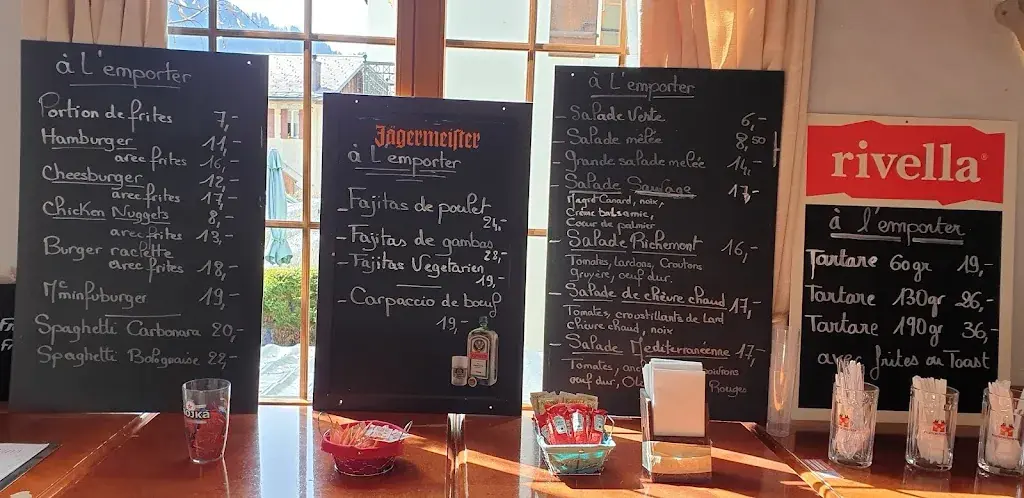 à L'emporter
Portion de frites 7,-
Hamburger 11,-
avec frites 16,-
Cheesburger 12,-
avec frites 17,-
Chicken Nuggets 8,-
avec frites 13,-
Burger raclette
avec frites 18,-
Mc minfuburger 19,-
Spaghetti Carbonara 20,-
Spaghetti Bolognaise 22,-
Jägermeister
à L'emporter
- Fajitas de poulet
24,-
- Fajitas de gambas
28,-
- Fajitas Vegetarien
19,-
- Carpaccio de bœuf
19,-
à L'emporter
- Salade Verte 6,-
- Salade mêlée 8,50
- grande salade mêlée 14,-
- Salade Sauvage 17,-
Magret Canard, noix,
Crème balsamic,
Coeur de palmier
- Salade Richemont 16,-
Tomates, lardons, Croutons
gruyère, oeuf dur.
- Salade de chèvre chaud 17,-
Tomates, croustillants de Lard
chèvre chaud, noix
- Salade Mediterranéenne 17,-
Tomates,
oeuf dur, Rouges
rivella
à l'emporter
Tartare 60gr 19,-
Tartare 130gr 26,-
Tartare 190gr 36,-
avec frites ou Toast